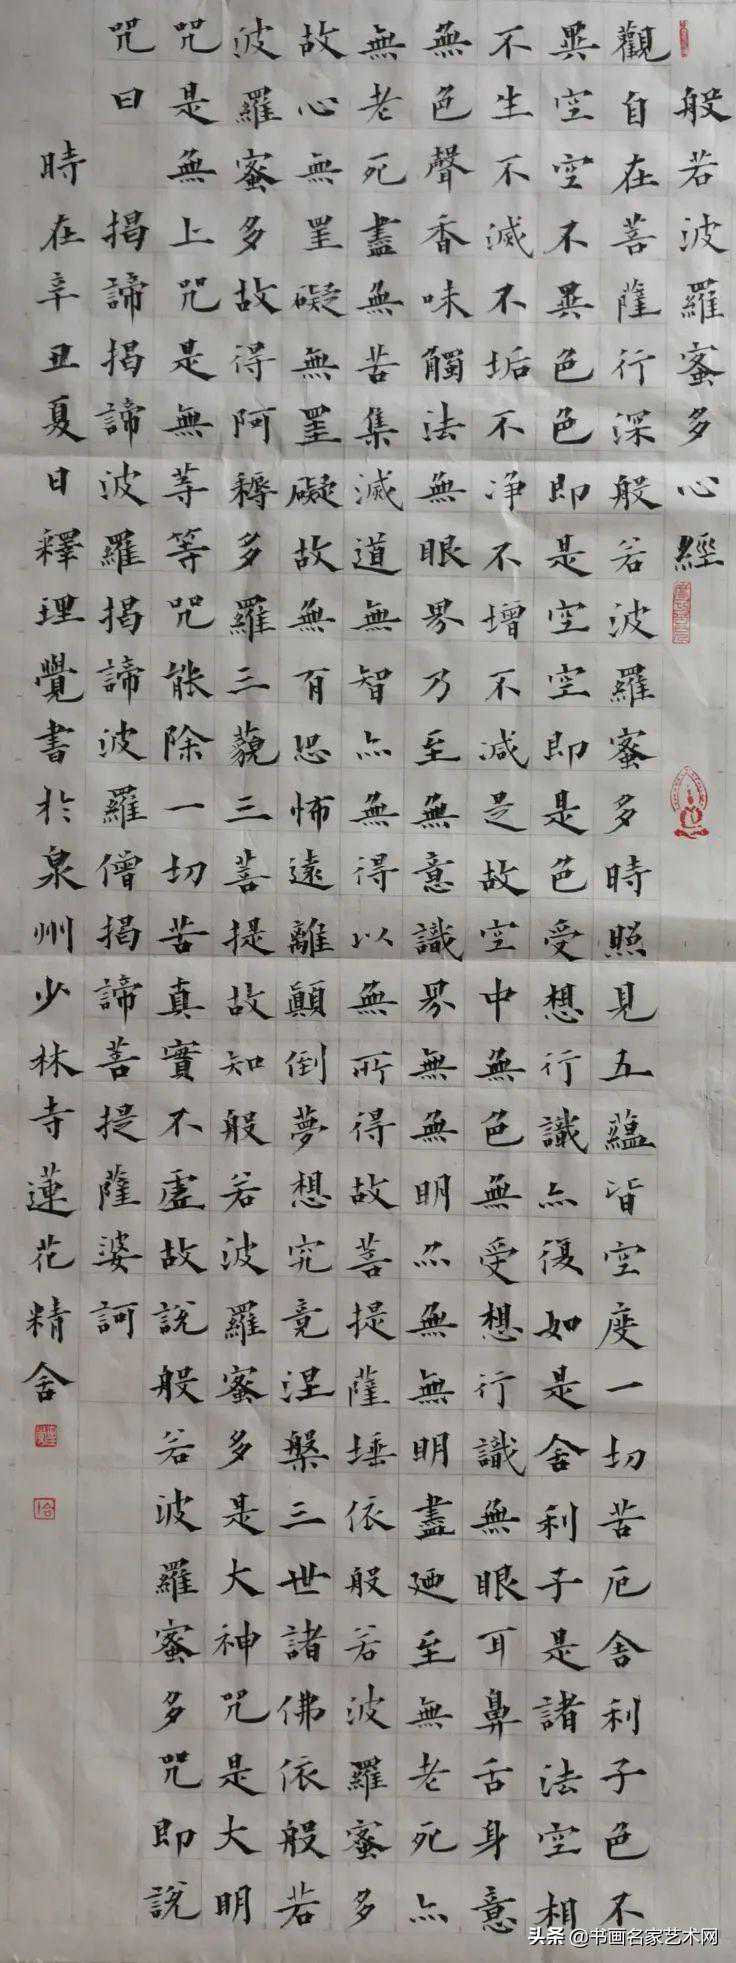 般若波羅蜜多心經
觀自在菩薩行深般若波羅蜜多時照見五蘊皆空度一切苦厄舍利子色不
異空空不異色色即是空空即是色受想行識亦復如是舍利子是諸法空相
不生不滅不垢不净不增不減是故空中無色無受想行識無眼耳鼻舌身意
無色聲香味觸法無眼界乃至無意識界無無明亦無無明盡廼至無老死亦
無老死盡無苦集滅道無智亦無得以無所得故菩提薩埵依般若波羅蜜多
故心無罣礙無罣礙故無有恐怖遠離顛倒夢想究竟涅槃三世諸佛依般若
波羅蜜多故得阿耨多羅三藐三菩提故知般若波羅蜜多是大神咒是大明
咒是無上咒是無等等咒能除一切苦真實不虛故說般若波羅蜜多咒即說
咒曰 揭諦揭諦波羅揭諦波羅僧揭諦菩提薩婆訶
時在辛丑夏日釋理覺書於泉州少林寺蓮花精舍
头条 @书画名家艺术网